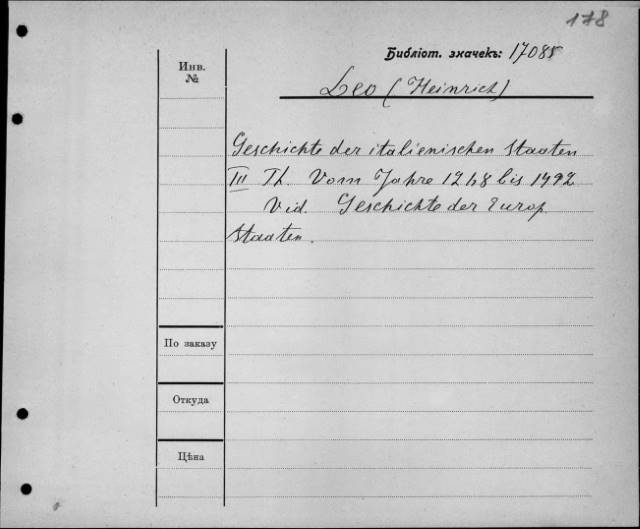 178
Библіот. значекъ: 17085
Инв.
№
Leo (Heinrich)
Geschichte der italienischen Staaten
III Th. Vom Jahre 1268 bis 1492
Vid. Geschichte der Europ.
Staaten.
По заказу
Откуда
Цѣна